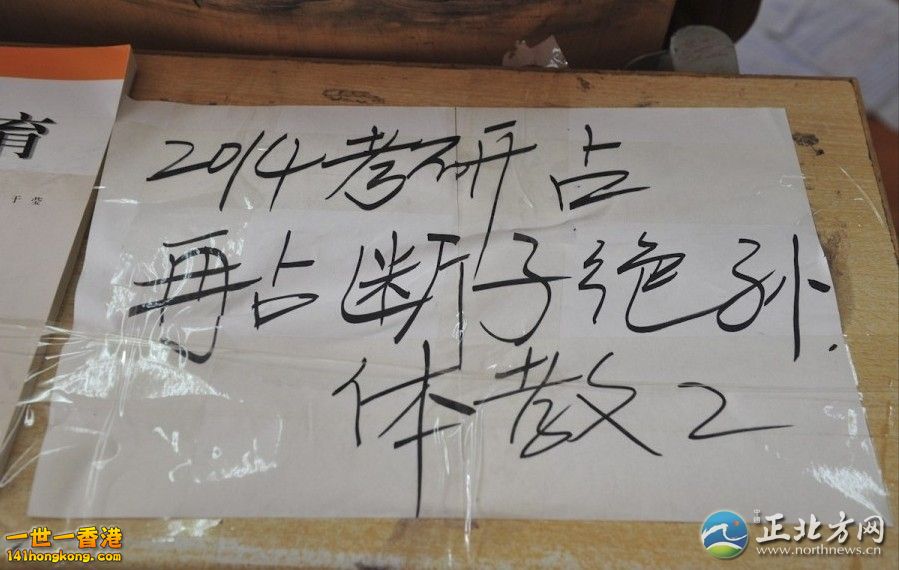 2014考研占
再占断子绝孙.
体教2
育
于莹
一世一香港
141hongkong.com
中国 正北方网
www.northnews.cn